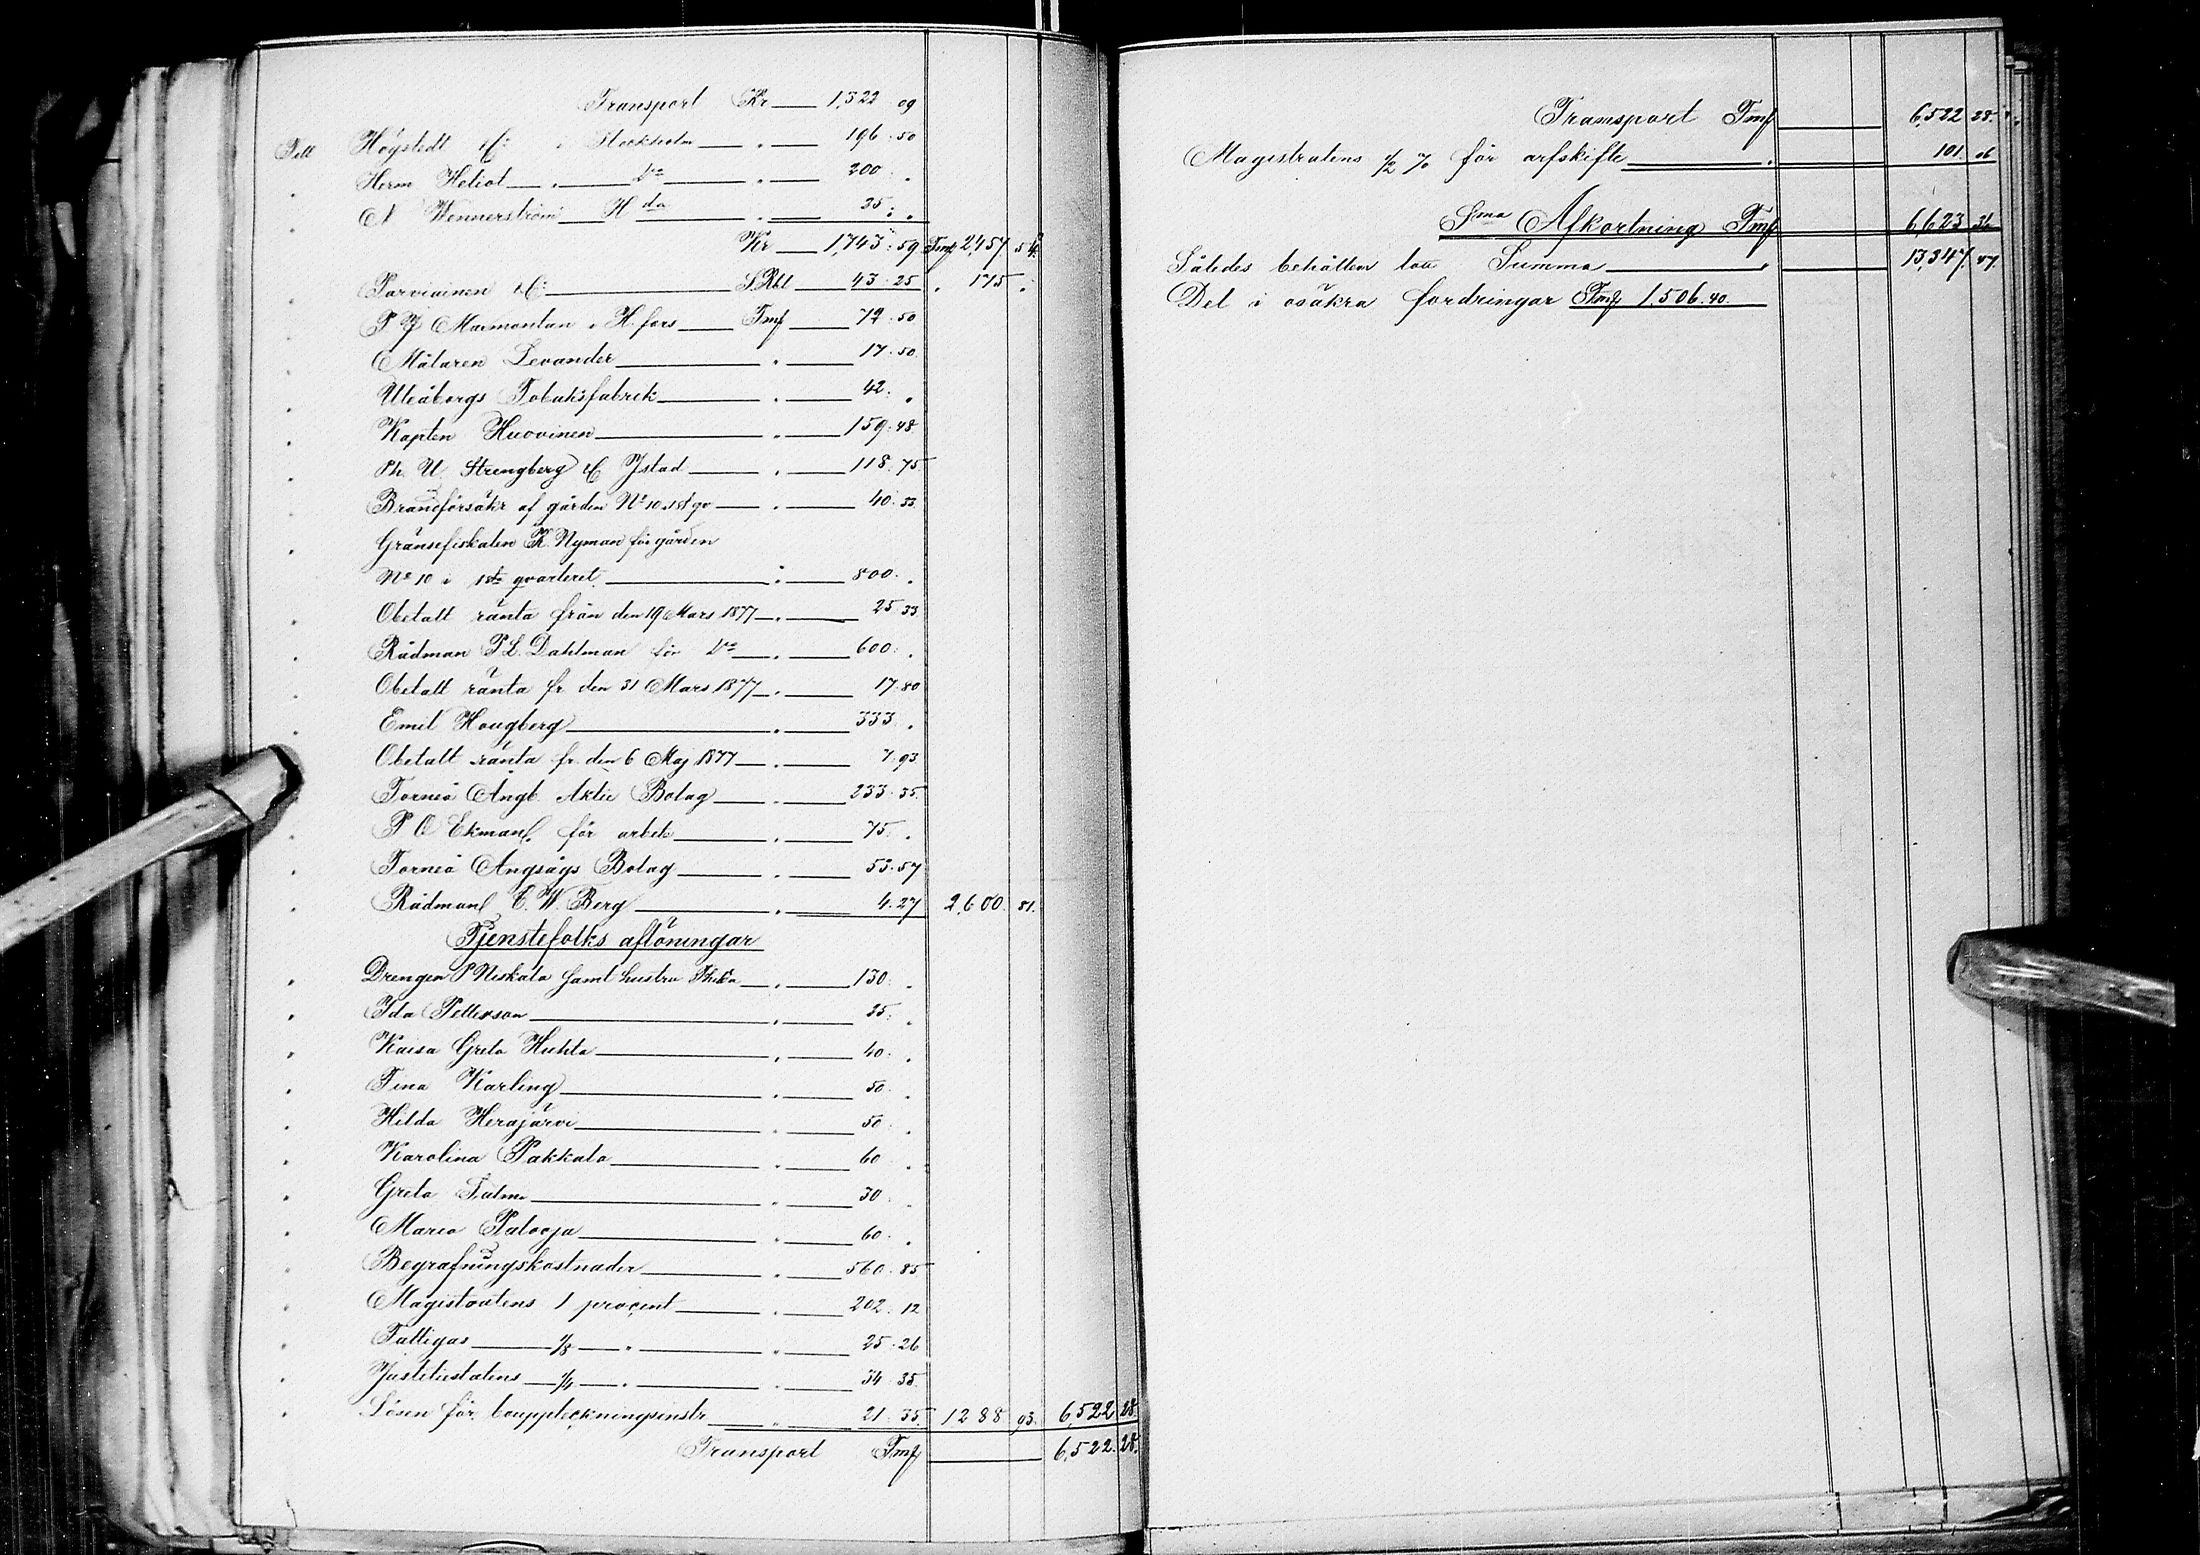 Transport Kr 1,322 09
Till Högstedt & C: i Stockholm " 196.50
" Herm Heliot " d:o " 200 "
" A Wennerström H:da " 25: "
Kr 1,743:59 Fmk 2,457 54.
" Parviainen & C: S.Rbl 43.25 " 175 "
" P J Marmontan i H.fors Fmk 72.50
" Målaren Levander " 17.50
" Uleåborgs Tobaksfabrik " 42. "
" Kapten Huovinen " 159.48
" Ph. U. Strengberg & C Jstad " 118.75
" Brandförsäkr af gården No 10 i 1st qv " 40.33
" Gränsefiskalen K. Nyman för gården
No 10 i 1sta qvarteret " 800. "
" Obetalt ränta från den 19 Mars 1877 " 25.33
" Rådman P.L. Dahlman för d:o " 600. "
" Obetalt ränta fr den 31 Mars 1877 " 17.80
" Emil Hougberg " 333. "
" Obetalt ränta fr. den 6 Maj 1877 " 7.93
" Torneå Ångb. Aktie Bolag " 233.35.
" P O Ekman för arbete " 75. "
" Torneå Ångsågs Bolag " 53.57
" Rådman C. W. Berg " 4.27 2,600. 81.
Tjenstefolks aflöningar
" Drengen P Niskala samt hustru " 130. "
" Ida Petterson " 25. "
" Kaisa Greta Huhta " 40. "
" Tina Karling " 50. "
" Hilda Herajärvi " 50. "
" Karolina Pakkala " 60 "
" Greta Salmi " 30. "
" Maria Palooja " 60. "
" Begrafningskostnader " 560.85
" Magistratens 1 procent " 202.12
" Fattigas 1/8 " " 25.26
" Justitiestatens 1/4 " " 34.35.
" Lösen för bouppteckningsinstr " 21.35. 1288 93. 6,522 28
Transport Fmk 6,522.28.
Transport Fmk 6,522 28.
Magistratens 1/2 % för arfskifte " 101.06
S:ma Afkortning Fmk 6,623 34
Således behållen boe Summa " 13,347.47.
Det i osäkra fordringar Fmk 1,506.40.